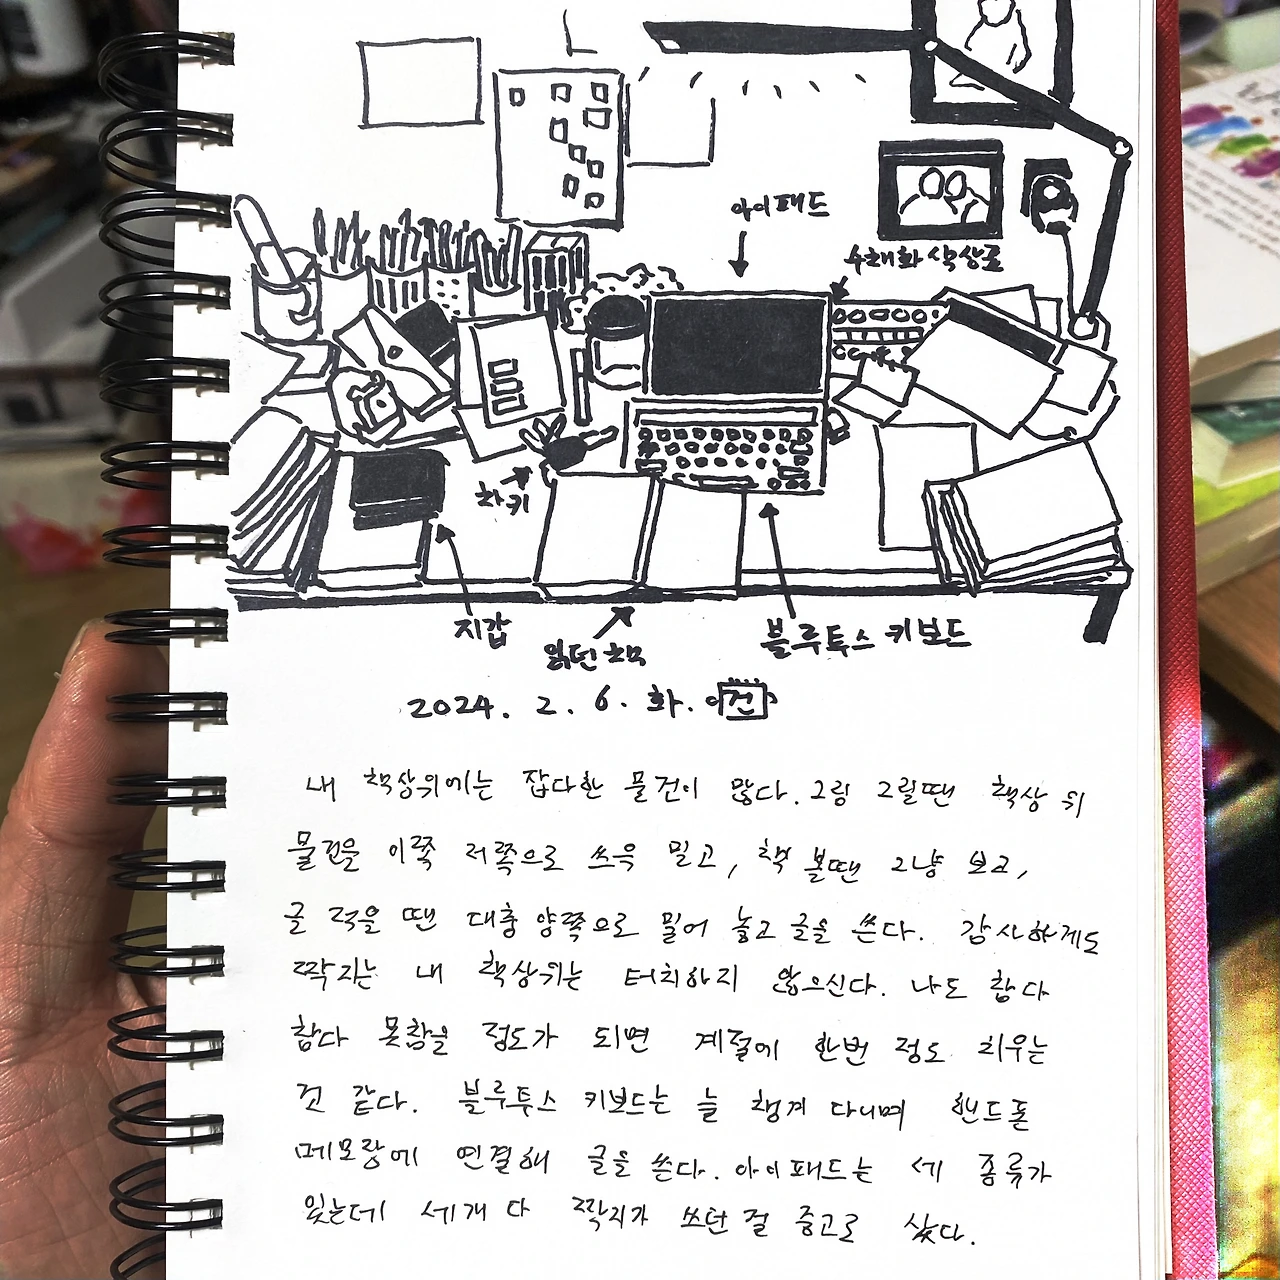 아이패드
수채화 색상표
차키
지갑
읽던 책
블루투스 키보드
2024. 2. 6. 화. 이건
내 책상위에는 잡다한 물건이 많다. 그림 그릴땐 책상 위
물건을 이쪽 저쪽으로 쓰윽 밀고, 책 볼땐 그냥 보고,
글 적을 땐 대충 양쪽으로 밀어 놓고 글을 쓴다. 감사하게도
짝지는 내 책상위는 터치하지 않으신다. 나도 참다
참다 못참을 정도가 되면 계절에 한번 정도 치우는
것 같다. 블루투스 키보드는 늘 챙겨 다니며 핸드폰
메모장에 연결해 글을 쓴다. 아이패드는 세 종류가
있는데 세개 다 짝지가 쓰던 걸 중고로 샀다.